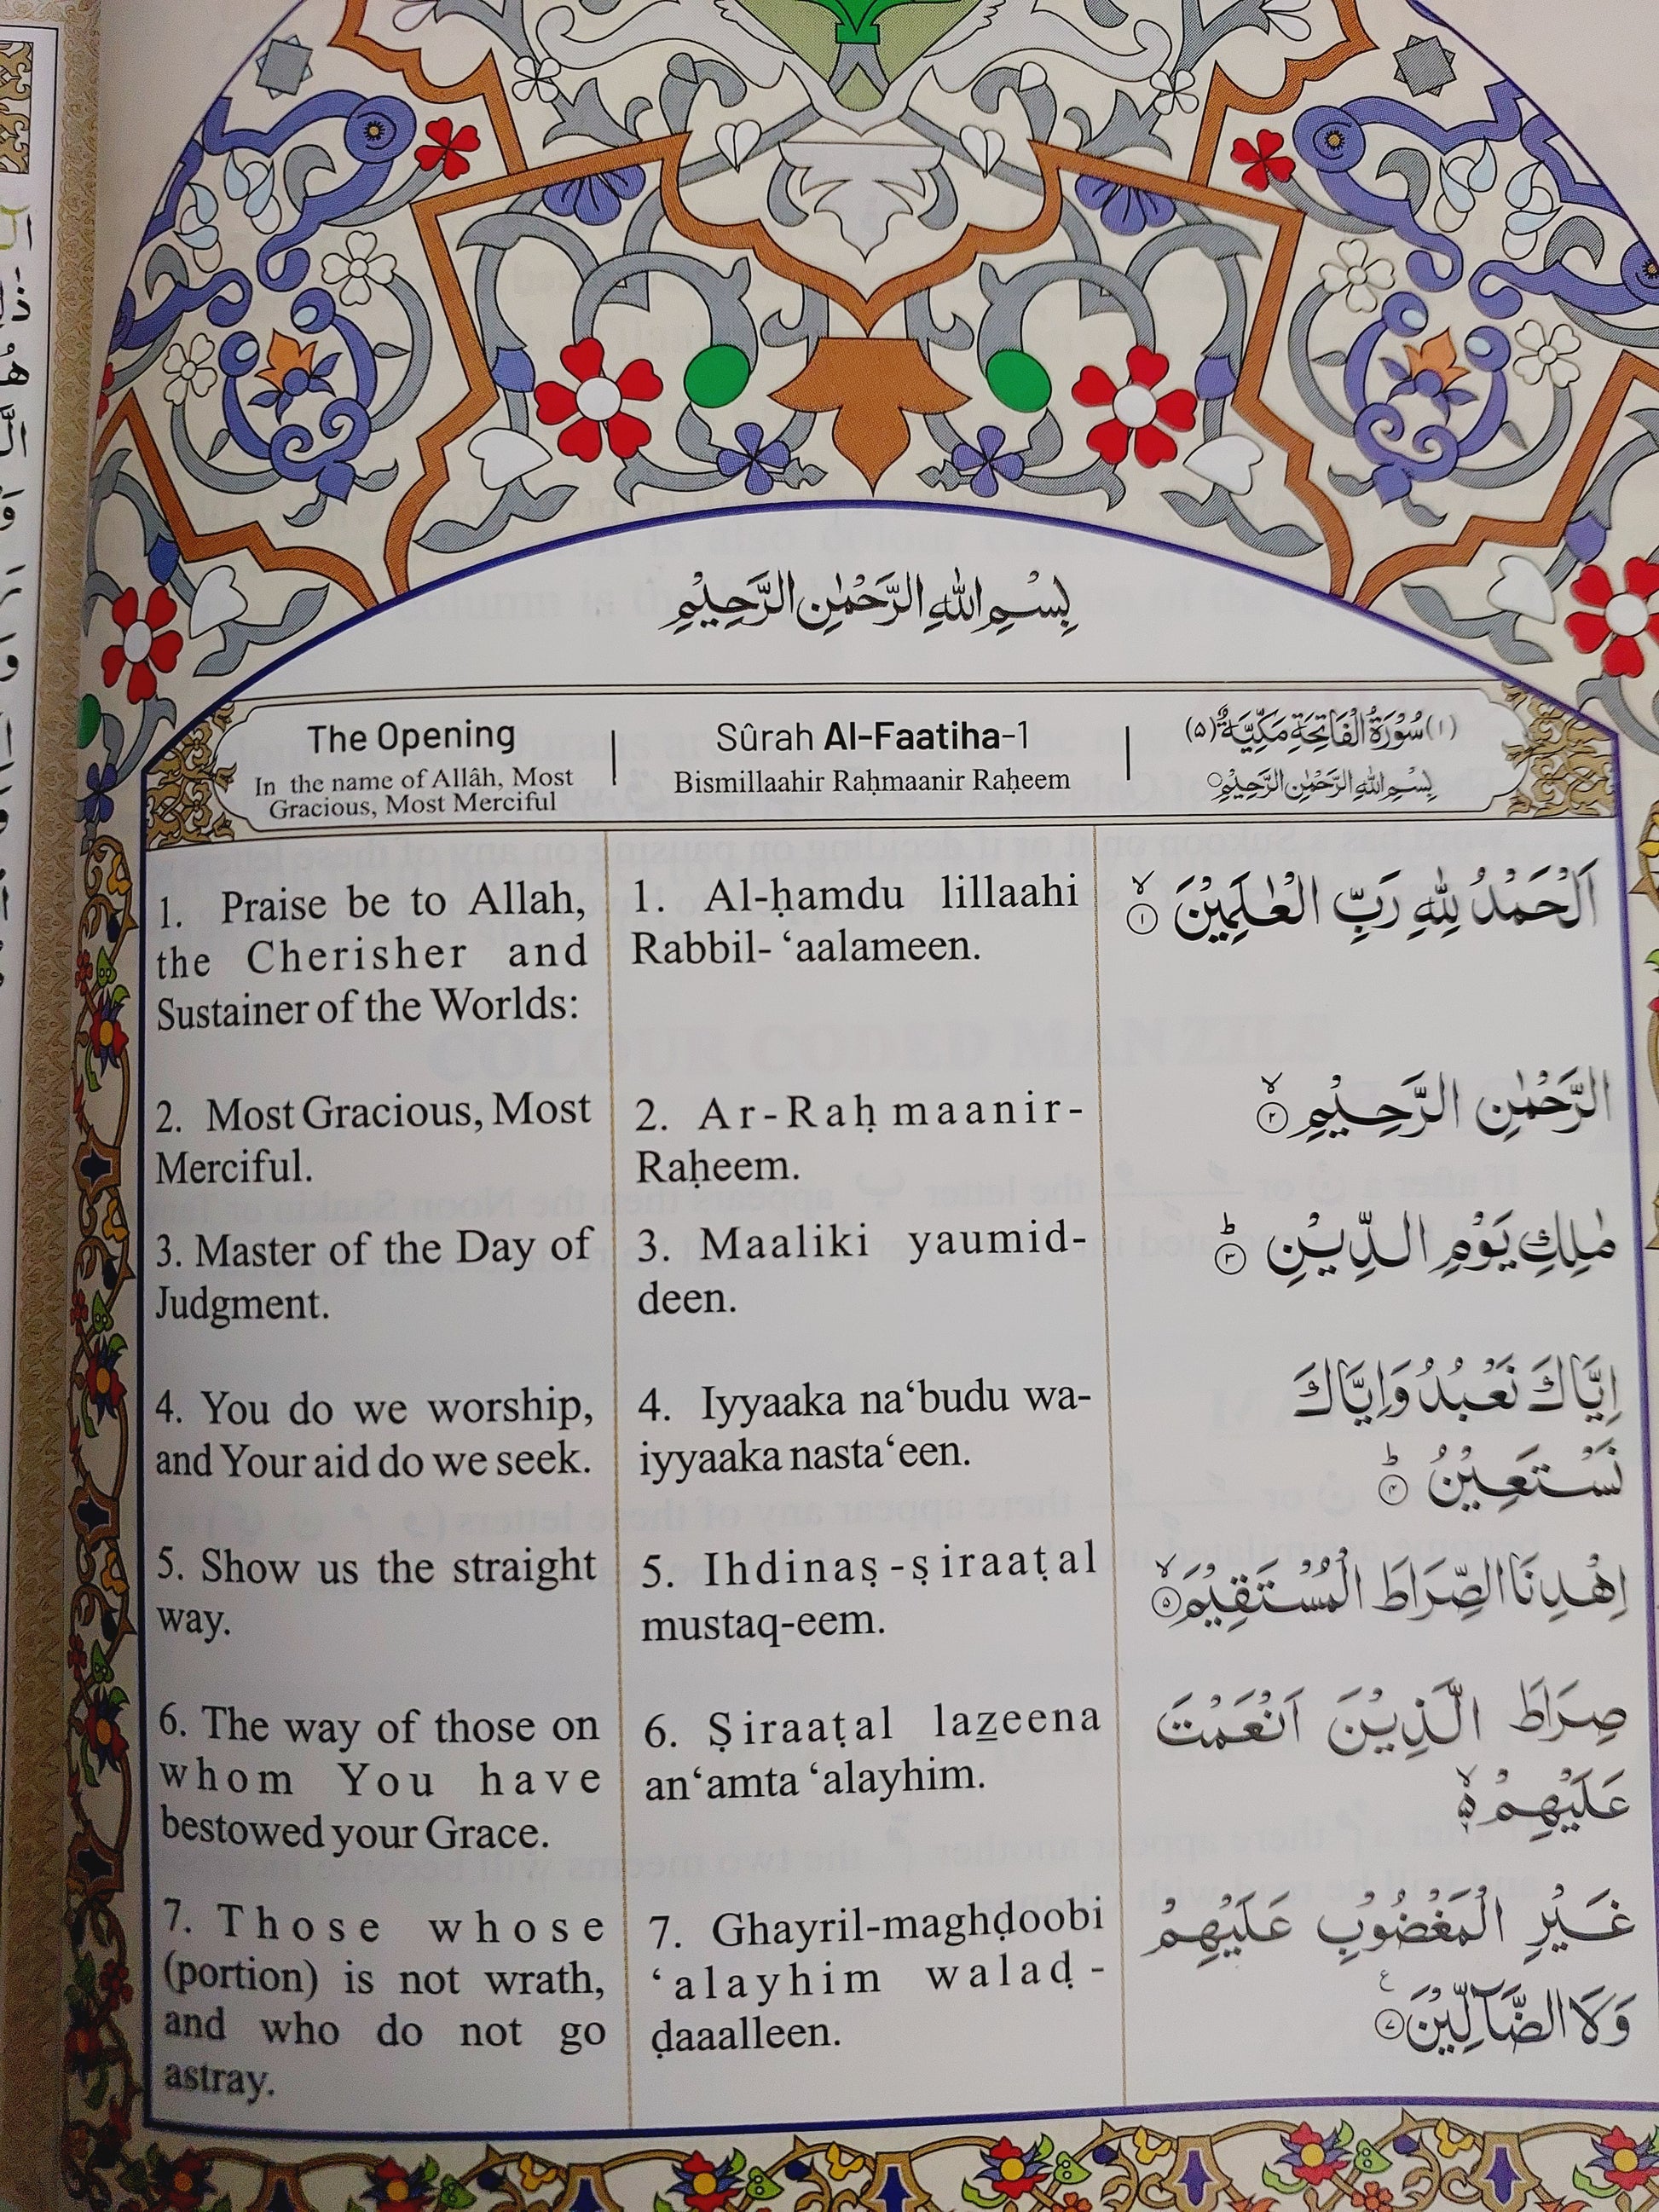 بِسْمِ اللّٰهِ الرَّحْمٰنِ الرَّحِيْمِ
The Opening
In the name of Allâh, Most
Gracious, Most Merciful
Sûrah Al-Faatiha-1
Bismillaahir Raḥmaanir Raḥeem
(١) سُوْرَةُ الْفَاتِحَةِ مَكِّيَّةٌ (٥)
بِسْمِ اللّٰهِ الرَّحْمٰنِ الرَّحِيْمِ
1. Praise be to Allah,
the Cherisher and
Sustainer of the Worlds:
1. Al-ḥamdu lillaahi
Rabbil- ‘aalameen.
اَلْحَمْدُ لِلّٰهِ رَبِّ الْعٰلَمِيْنَ ۙ ١
2. Most Gracious, Most
Merciful.
2. Ar-Raḥmaanir-
Raḥeem.
الرَّحْمٰنِ الرَّحِيْمِ ۙ ٢
3. Master of the Day of
Judgment.
3. Maaliki yaumid-
deen.
مٰلِكِ يَوْمِ الدِّيْنِ ؕ ٣
4. You do we worship,
and Your aid do we seek.
4. Iyyaaka na‘budu wa-
iyyaaka nasta‘een.
اِيَّاكَ نَعْبُدُ وَاِيَّاكَ
نَسْتَعِيْنُ ؕ ۴
5. Show us the straight
way.
5. Ihdinaṣ-ṣiraaṭal
mustaq-eem.
اِهْدِنَا الصِّرَاطَ الْمُسْتَقِيْمَ ۙ ۵
6. The way of those on
whom You have
bestowed your Grace.
6. Ṣiraaṭal lazeena
an‘amta ‘alayhim.
صِرَاطَ الَّذِيْنَ اَنْعَمْتَ
عَلَيْهِمْ ۙ
7. Those whose
(portion) is not wrath,
and who do not go
astray.
7. Ghayril-maghḍoobi
‘alayhim walaḍ-
ḍaaalleen.
غَيْرِ الْمَغْضُوْبِ عَلَيْهِمْ
وَلَا الضَّآلِّيْنَ ٧